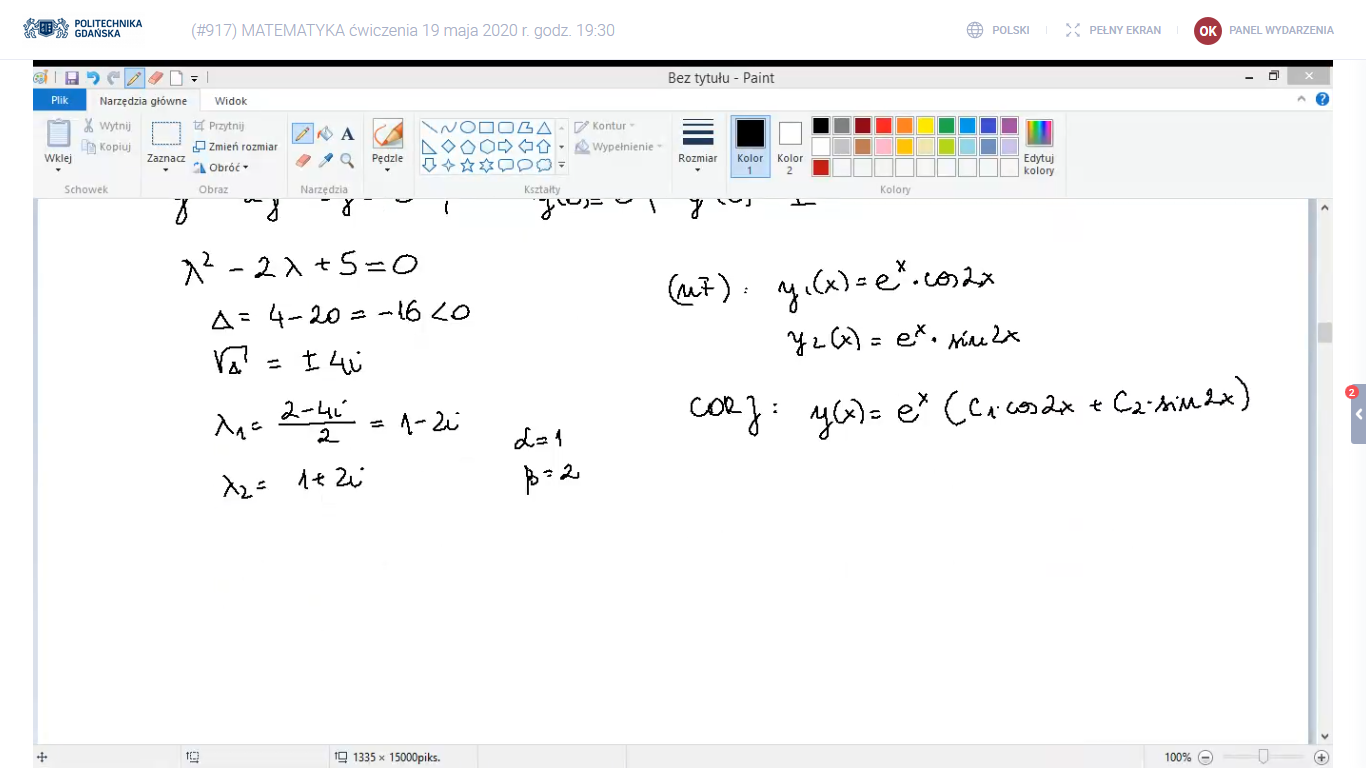 POLITECHNIKA
GDAŃSKA
(#917) MATEMATYKA ćwiczenia 19 maja 2020 r. godz. 19:30
POLSKI
PEŁNY EKRAN
OK
PANEL WYDARZENIA
Bez tytułu - Paint
Plik
Narzędzia główne
Widok
Wklej
Wytnij
Kopiuj
Schowek
Zaznacz
Przytnij
Zmień rozmiar
Obróć
Obraz
A
Narzędzia
Pędzle
Kontur
Wypełnienie
Kształty
Rozmiar
Kolor
1
Kolor
2
Edytuj
kolory
Kolory
λ² - 2λ + 5 = 0
Δ = 4 - 20 = -16 < 0
√Δ = ± 4i
λ₁ = (2-4i)/2 = 1 - 2i
λ₂ = 1 + 2i
α = 1
β = 2
y₁(x) = eˣ · cos2x
y₂(x) = eˣ · sin2x
CORJ : y(x) = eˣ (C₁·cos2x + C₂·sin2x)
2
1335 × 15000piks.
100%